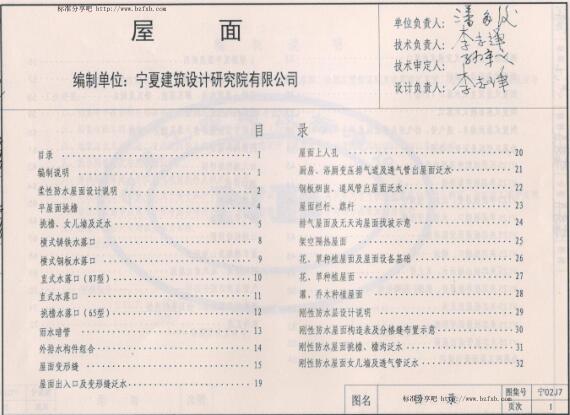 标准分享吧 http://www.bzfxb.com
屋 面
编制单位：宁夏建筑设计研究院有限公司
单位负责人：
技术负责人：
技术审定人：
设计负责人：
目 录
目录 1
编制说明 1
柔性防水屋面设计说明 2
平屋面挑檐 4
挑檐、女儿墙及泛水 5
横式铸铁水落口 8
横式钢板水落口 9
直式水落口（87型） 10
直式水落口 11
挑檐水落口（65型） 12
雨水暗管 13
外排水构件组合 14
屋面变形缝 15
屋面出入口及变形缝泛水 19
屋面上人孔 20
厨房、浴厕变压排气道及透气管出屋面泛水 21
钢板烟囱、通风管出屋面泛水 22
屋面栏杆、旗杆 23
排气屋面及无天沟屋面找坡示意 24
架空隔热屋面 25
花、草种植屋面及屋面设备基础 26
花、草种植屋面 27
灌、乔木种植屋面 28
刚性防水层设计说明 29
刚性防水屋面构造表及分格缝布置示意 30
刚性防水屋面挑檐、檐沟泛水 31
刚性防水屋面女儿墙及透气管泛水 32
图名 目 录 图集号 宁02J7
页次 1
标准分享吧 http://www.bzfxb.com